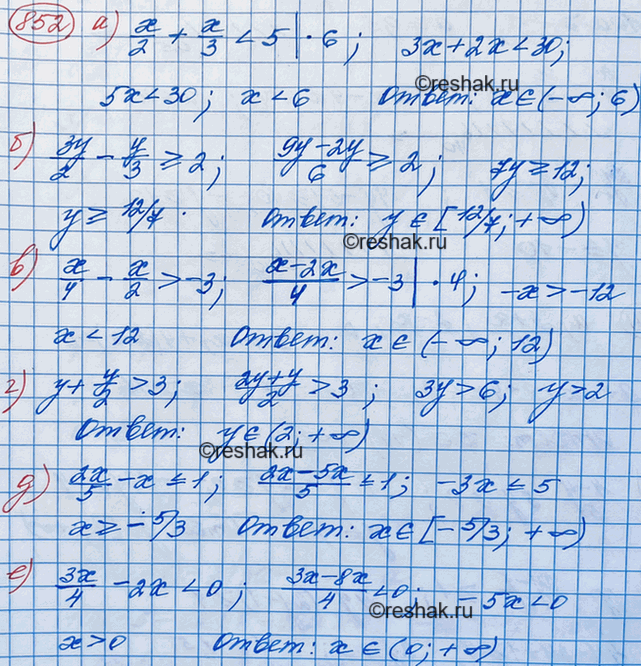 852 а) x/2 + x/3 < 5 | · 6; 3x+2x<30;
©reshak.ru
5x<30; x<6 Ответ: x∈(-∞; 6)
б) 3y/2 - y/3 ≥ 2; (9y-2y)/6 ≥ 2; 7y≥12;
y≥12/7. Ответ: y∈[12/7; +∞)
©reshak.ru
в) x/4 - x/2 > -3; (x-2x)/4 > -3 | · 4; -x>-12
x<12 Ответ: x∈(-∞; 12)
г) y+ y/2 >3; (2y+y)/2 >3; 3y>6; y>2
Ответ: y∈(2; +∞)
©reshak.ru
д) 2x/5 - x ≤ 1; (2x-5x)/5 ≤ 1; -3x≤5
x≥-5/3 Ответ: x∈[-5/3; +∞)
е) 3x/4 - 2x<0; (3x-8x)/4 <0; -5x<0
©reshak.ru
x>0 Ответ: x∈(0; +∞)